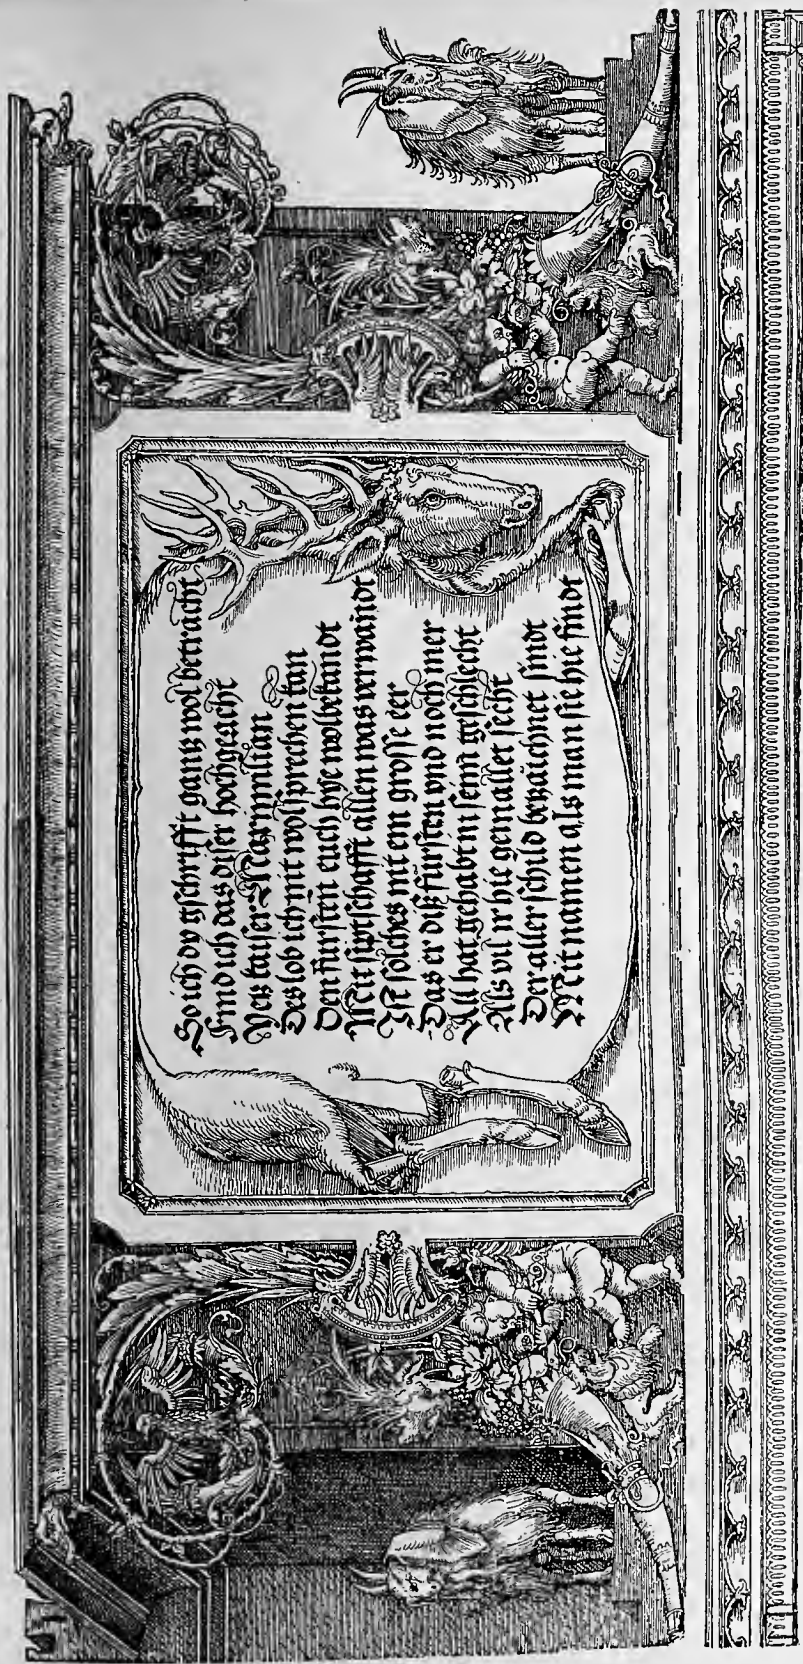 So ich dy gschrifft gantz wol betracht
Find ich das diser hochgeacht
Herr kaiser Maximilian
Des lob ich nit wol sprechen kan
Den fürsten euch hye wolbekandt
Mit siptschafft allen was verwandt
Ist solches nit ein grosse eer
Das er diß fürsten vnd noch mer
All hat gehabt in seim geschlecht
Als vil ir hie gemallet secht
Der aller schild bezaichnet sindt
Mit namen als man sie hie findt